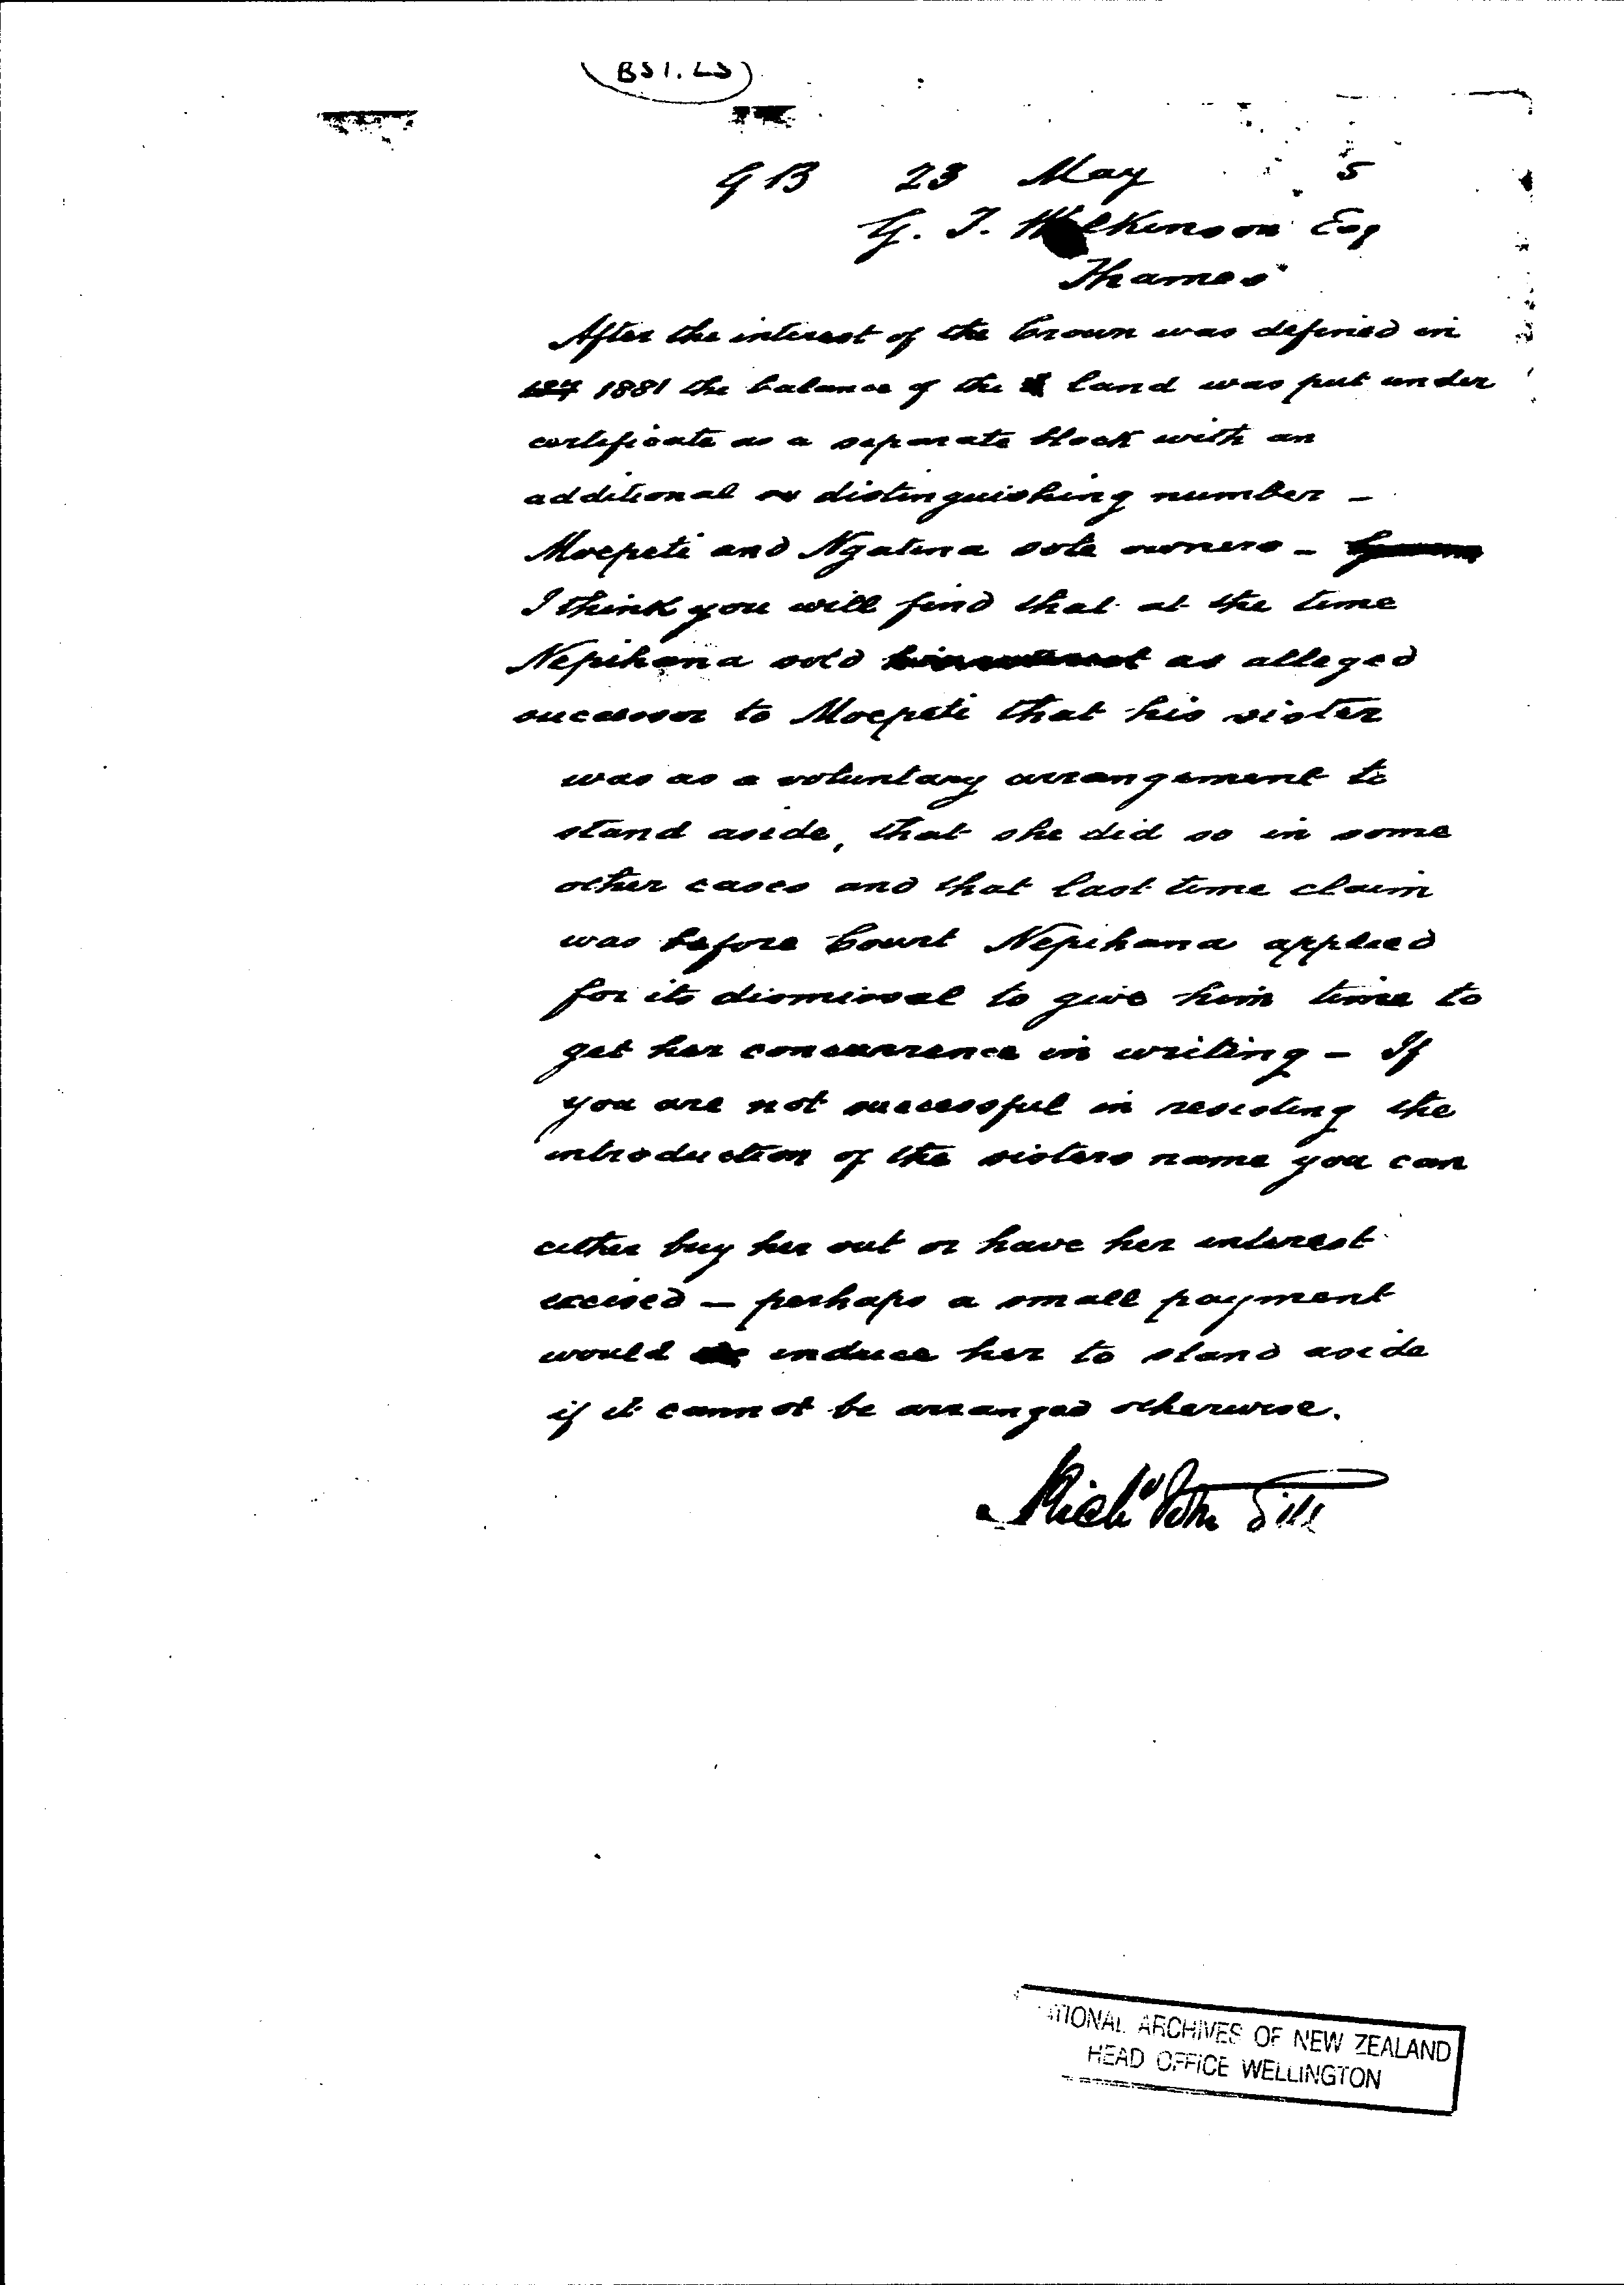 B51.L5
G B 23 May 5
G. T. Wilkinson Esq
Thames
After the interest of the Crown was defined in
187 1881 the balance of the land was put under
certificate as a separate block with an
additional or distinguishing number –
Moepeti and Ngatina sole owners –
I think you will find that at the time
Nepihana sold his interest as alleged
successor to Moepeti that his sister
was as a voluntary arrangement to
stand aside, that she did so in some
other cases and that last time claim
was before Court Nepihana applied
for its dismissal to give him time to
get her concurrence in writing – If
you are not successful in resisting the
introduction of the sisters name you can
either buy her out or have her interest
excised – perhaps a small payment
would induce her to stand aside
if it cannot be arranged otherwise.
Richd Jno Gill
NATIONAL ARCHIVES OF NEW ZEALAND
HEAD OFFICE WELLINGTON